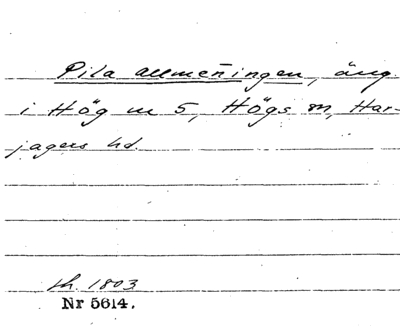 Pila allmeningen, äng
i Hög n 5, Högs sn, Har-
jagers hd.
sk. 1803
Nr 5614.